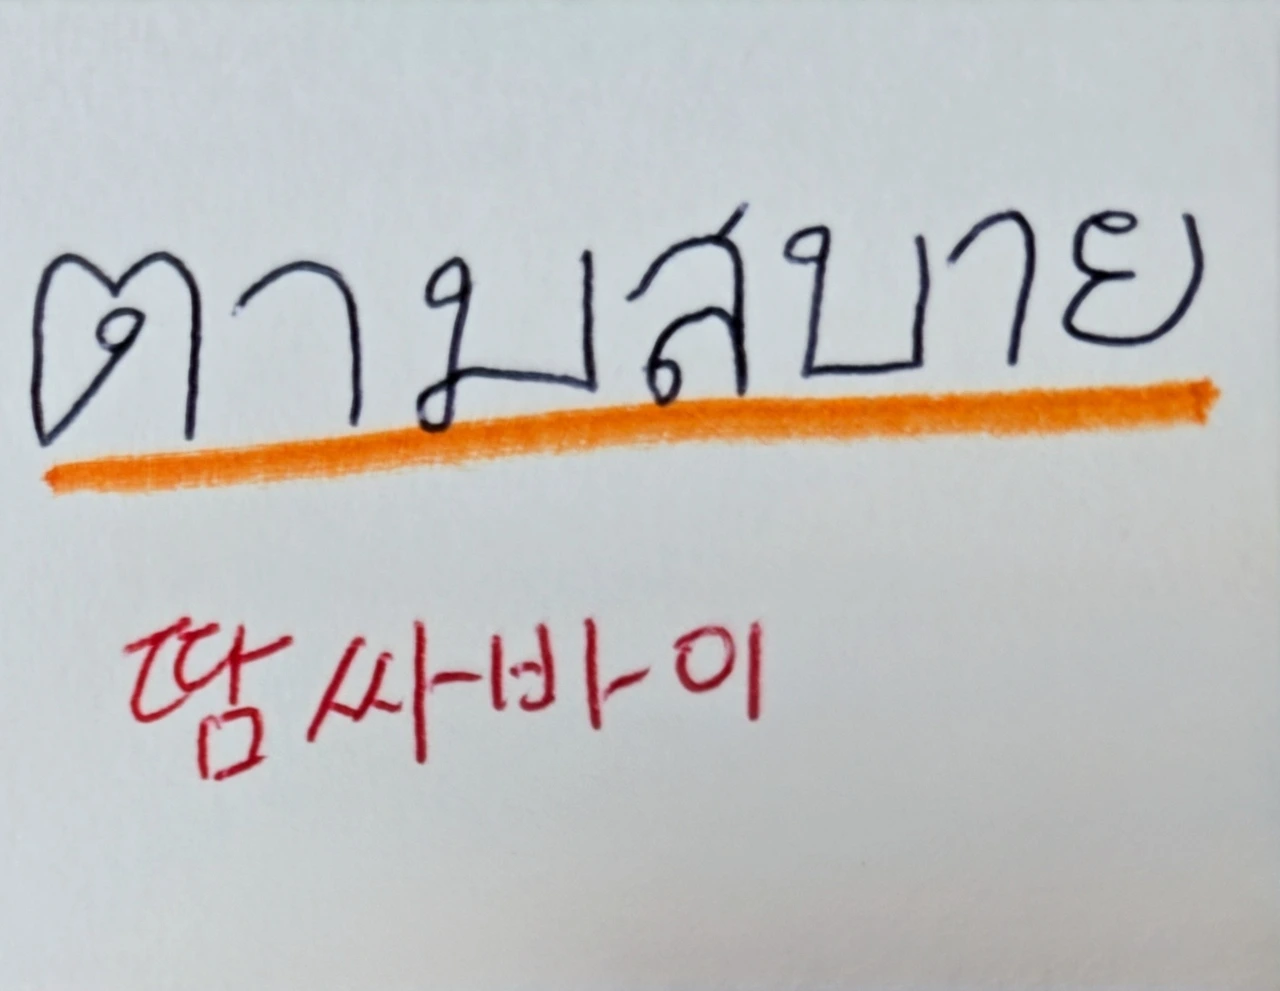 ตามสบาย
땀싸바이